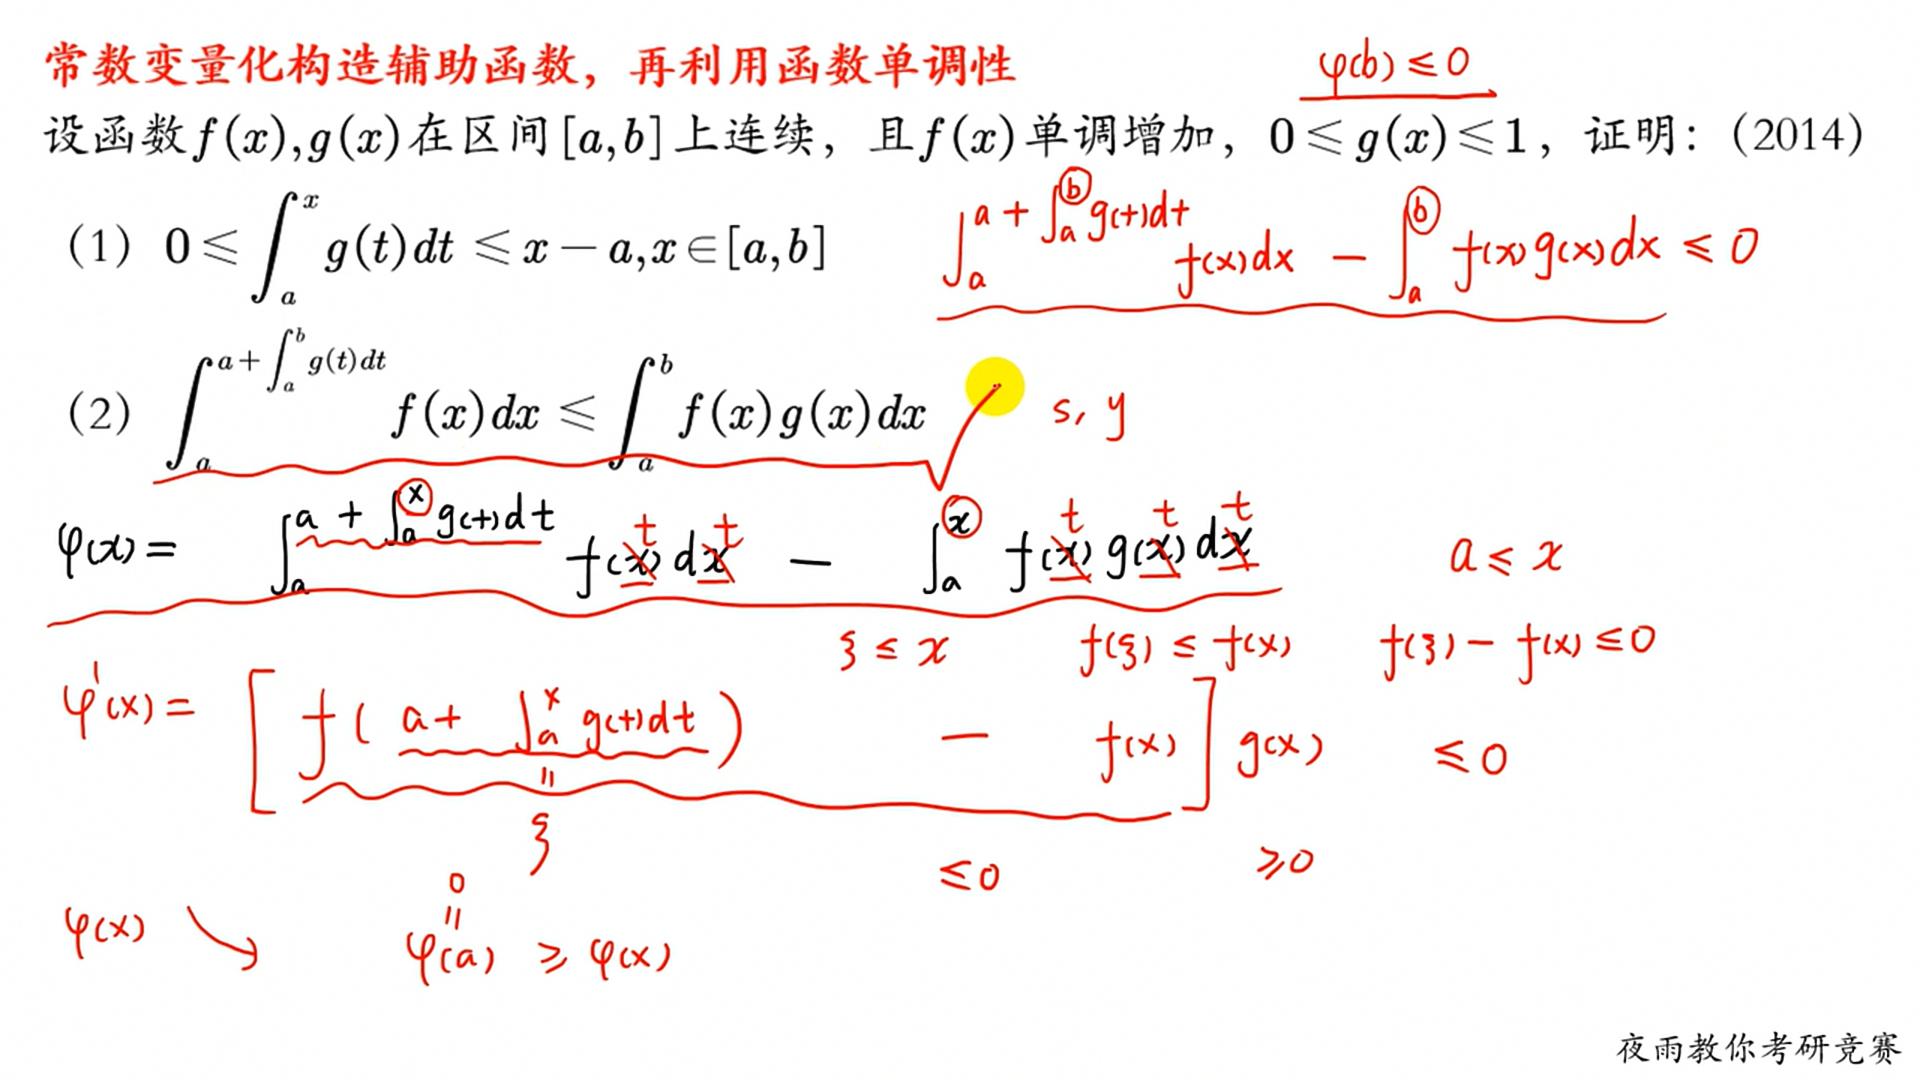 常数变量化构造辅助函数，再利用函数单调性
φ(b) ≤ 0
设函数f(x),g(x)在区间[a,b]上连续，且f(x)单调增加，0≤g(x)≤1，证明：（2014）
（1）0 ≤ ∫_a^x g(t)dt ≤ x−a, x∈[a,b]
∫_a^{a+∫_a^b g(t)dt} f(x)dx − ∫_a^b f(x)g(x)dx ≤ 0
（2）∫_a^{a+∫_a^b g(t)dt} f(x)dx ≤ ∫_a^b f(x)g(x)dx
s, y
φ(x) = ∫_a^{a+∫_a^x g(t)dt} f(x)dx − ∫_a^x f(x)g(x)dx
t t t t t
a ≤ x
ξ ≤ x f(ξ) ≤ f(x) f(ξ) − f(x) ≤ 0
φ'(x) = [ f( a + ∫_a^x g(t)dt ) − f(x) ] g(x) ≤ 0
=
ξ
≤0 ≥0
0
=
φ(x) ↘ φ(a) ≥ φ(x)
夜雨教你考研竞赛